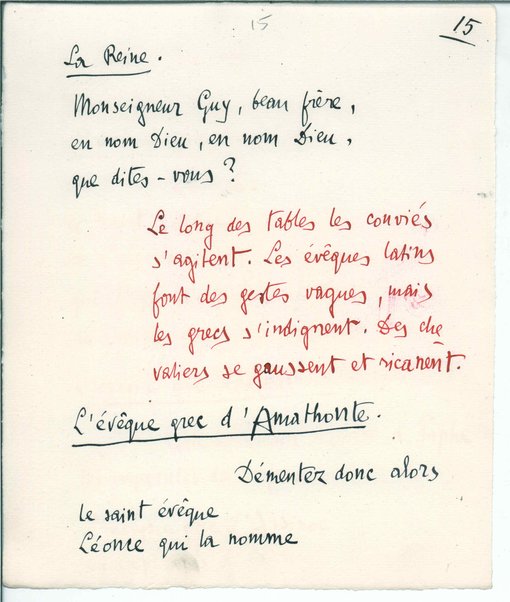 15 15
La Reine.
Monseigneur Guy, beau frère,
en nom Dieu, en nom Dieu,
que dites-vous?
Le long des tables les conviés
s'agitent. Les évêques latins
font des gestes vagues, mais
les grecs s'indignent. Des che
valiers se gaussent et ricanent.
L'évêque grec d'Amathonte.
Démentez donc alors
le saint évêque
Léonce qui la nomme